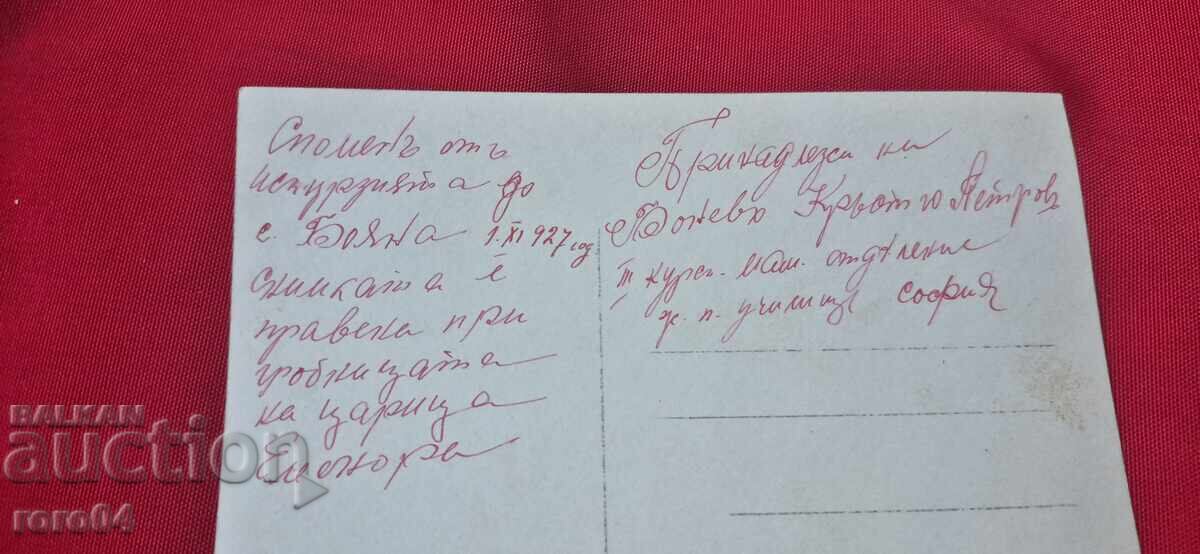 Споменъ отъ
искурзията до
с. Бояна 1.XI 927 год
снимката е
правена при
гробницата
на царица
Елеонора
Принадлежи на
Боневъ Кръстю Петровъ
III курс. маш. отдѣление
ж. п. училище София
BALKAN
auction
roro04